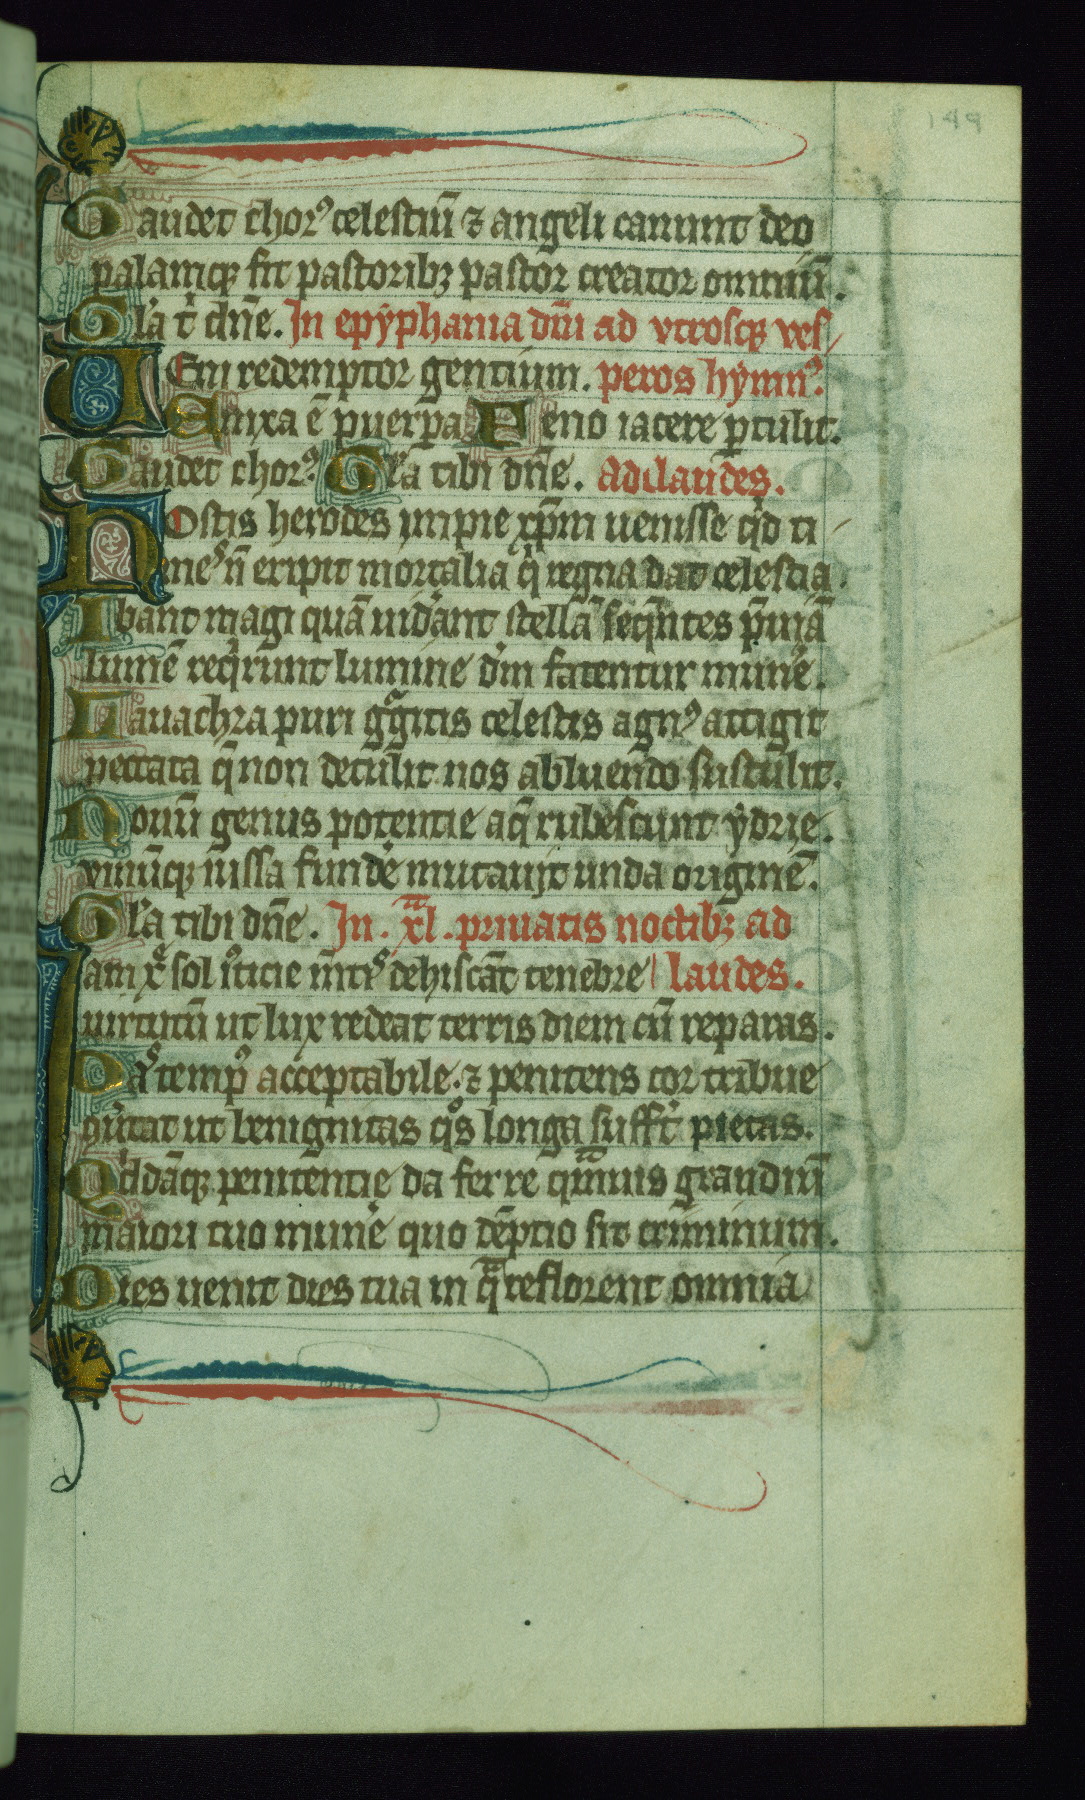 149
Gaudet chorꝰ celestiū ⁊ angeli canunt deo
palamqꝫ fit pastoribꝫ pastor creator omniū.
Gl'a t' dn̄e. In epẏphania dn̄i ad vtrosqꝫ ves/
Veni redemptor gentium. peros hẏmnꝰ.
Enixa ē puerpa Feno iacere ꝑtulit.
Gaudet chorꝰ. Gl'a tibi dn̄e. Ad laudes.
Hostis herodes impie xp̄m uenisse qⁱd ti
mesˀ n̄ eripit mortalia qⁱ regna dat celestia.
Ibant magi quā uid'ant stellā seq̄ntes p̄uiā
lumē reqⁱrunt lumine d'm fatentur mun'e.
Lauachra puri gᵃgitis celestis agnꝰ attigit
peccata q̄ non detulit nos abluendo sustulit.
Nouū genus potentie aq̄ rubescunt ẏdrie.
vinūqꝫ iussa fund'e mutauit unda originē.
Gl'a tibi dn̄e. In. xl. priuatis noctibꝫ ad
Iam xᵉ sol iᵒticie m̄tˀ dehiscāt tenebre laudes.
uirtutū ut lux redeat terris diem cū reparas.
Dāsˀ tempꝰ acceptabile. ⁊ penitens cor tribue
ꝯu'tat ut benignitas qᵒs longa suff't pietas.
Qⁱddāqꝫ penitentie da ferre qᵃmuis grandiū
maiori tuo mun'e quo dēptio fit criminum.
Dies uenit dies tua in qᵃ reflorent omnia